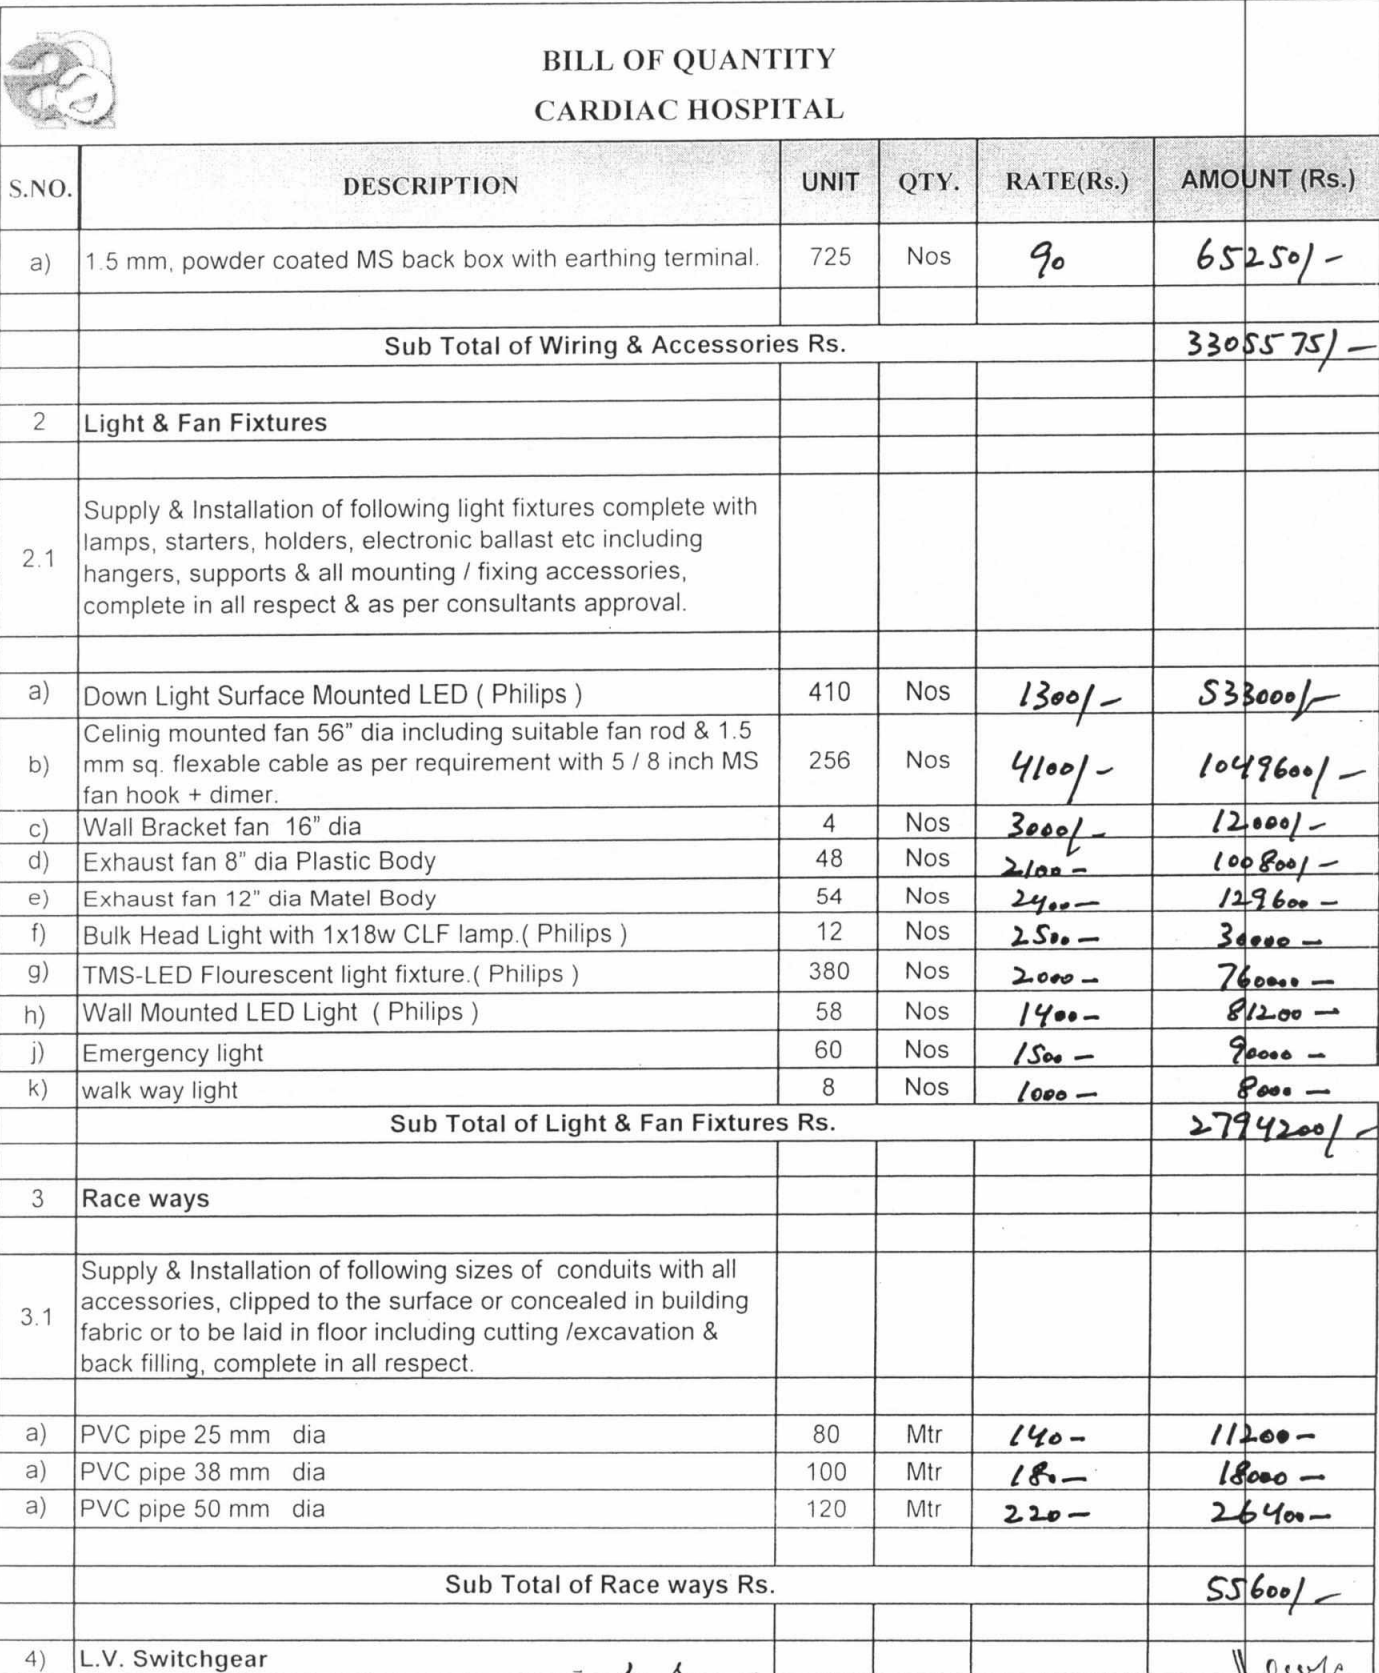 BILL OF QUANTITY
CARDIAC HOSPITAL
S.NO. DESCRIPTION UNIT QTY. RATE(Rs.) AMOUNT (Rs.)
a) 1.5 mm, powder coated MS back box with earthing terminal. 725 Nos 90 65250/-
Sub Total of Wiring & Accessories Rs. 3305575/-
2 Light & Fan Fixtures
2.1 Supply & Installation of following light fixtures complete with
lamps, starters, holders, electronic ballast etc including
hangers, supports & all mounting / fixing accessories,
complete in all respect & as per consultants approval.
a) Down Light Surface Mounted LED ( Philips ) 410 Nos 1300/- 533000/-
b) Celinig mounted fan 56" dia including suitable fan rod & 1.5
mm sq. flexable cable as per requirement with 5 / 8 inch MS 256 Nos 4100/- 1049600/-
fan hook + dimer.
c) Wall Bracket fan 16" dia 4 Nos 3000/- 12000/-
d) Exhaust fan 8" dia Plastic Body 48 Nos 2100- 100800/-
e) Exhaust fan 12" dia Matel Body 54 Nos 2400- 129600-
f) Bulk Head Light with 1x18w CLF lamp.( Philips ) 12 Nos 2500- 30000-
g) TMS-LED Flourescent light fixture.( Philips ) 380 Nos 2000- 760000-
h) Wall Mounted LED Light ( Philips ) 58 Nos 1400- 81200-
j) Emergency light 60 Nos 1500- 90000-
k) walk way light 8 Nos 1000- 8000-
Sub Total of Light & Fan Fixtures Rs. 2794200/-
3 Race ways
3.1 Supply & Installation of following sizes of conduits with all
accessories, clipped to the surface or concealed in building
fabric or to be laid in floor including cutting /excavation &
back filling, complete in all respect.
a) PVC pipe 25 mm dia 80 Mtr 140- 11200-
a) PVC pipe 38 mm dia 100 Mtr 180- 18000-
a) PVC pipe 50 mm dia 120 Mtr 220- 26400-
Sub Total of Race ways Rs. 55600/-
4) L.V. Switchgear